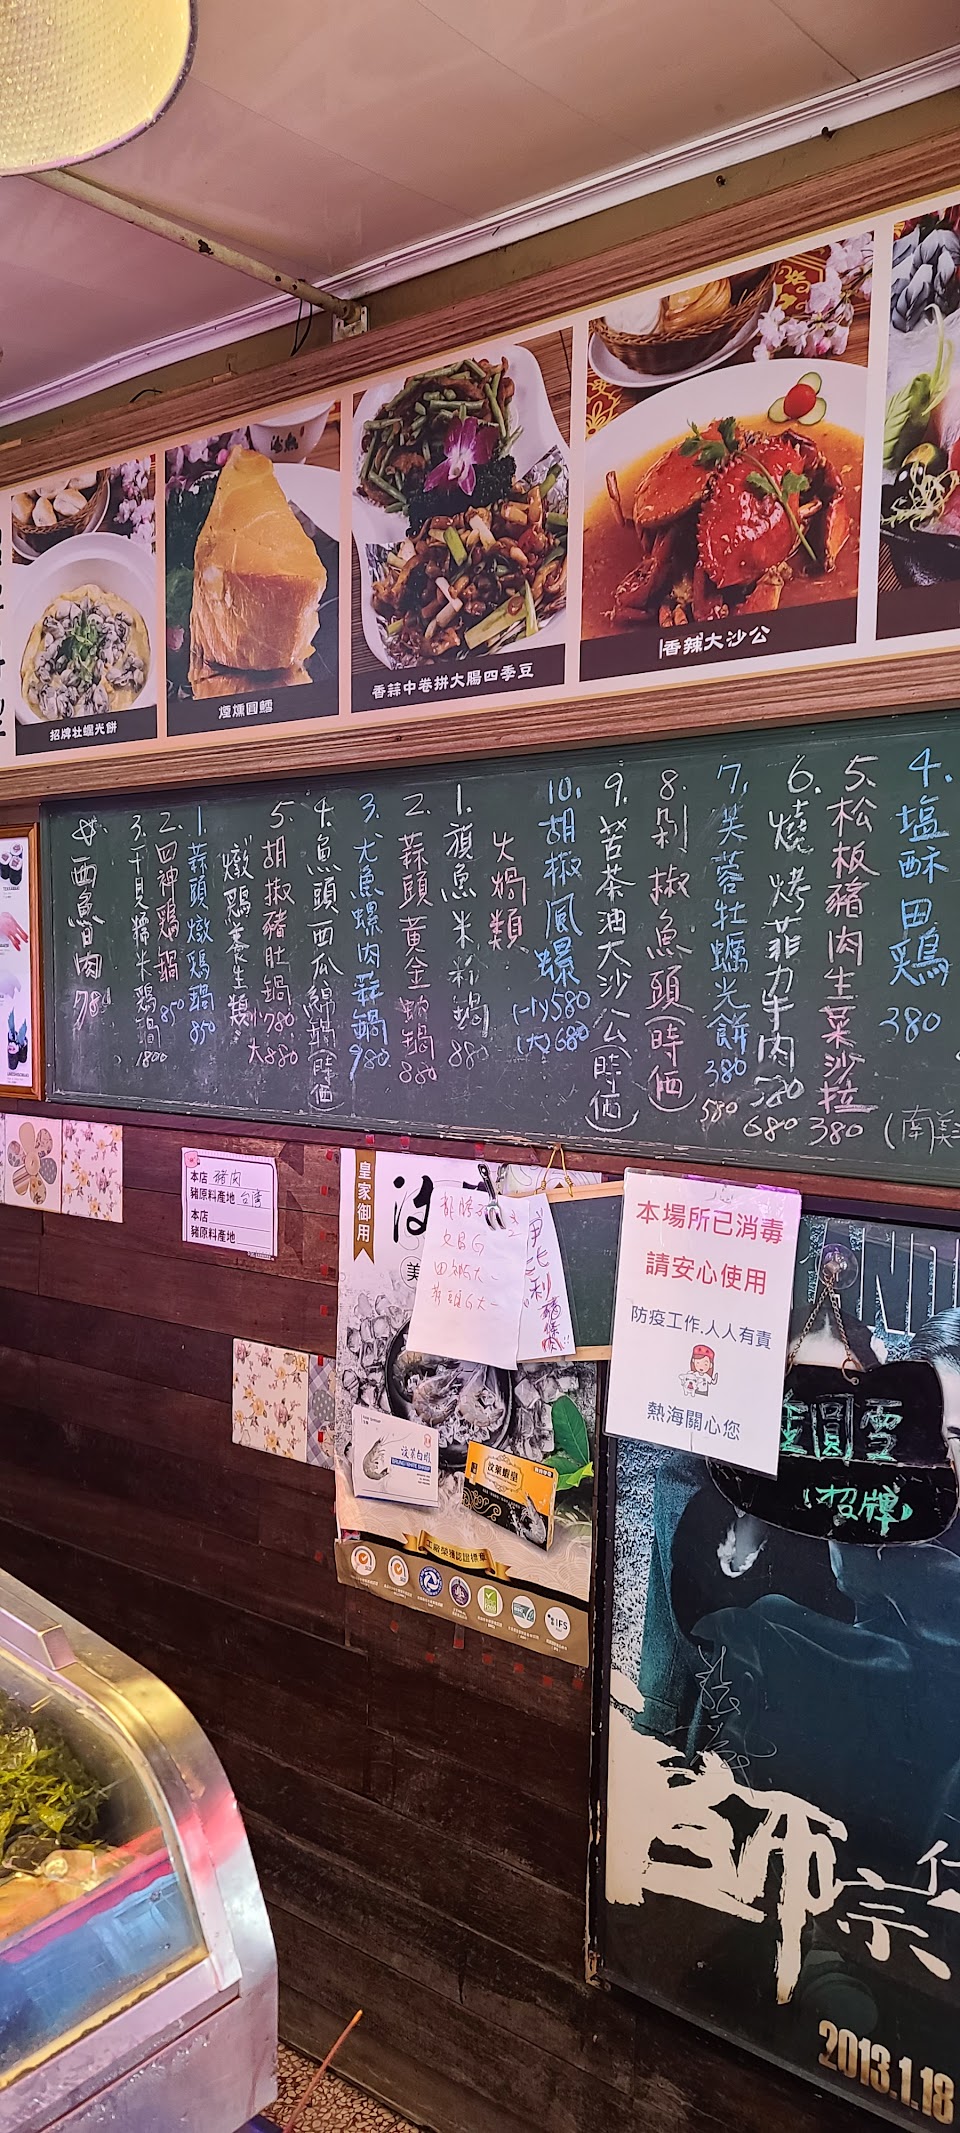 招牌牡蠣光餅
煙燻圓鱈
香蒜中卷拼大腸四季豆
香辣大沙公
4. 塩酥田鶏 380
5. 松板豬肉生菜沙拉 380
6. 燒烤菲力牛肉 580 680
7. 芙蓉牡蠣光餅 380 580
8. 剁椒魚頭(時価)
9. 苦茶油大沙公(時価)
10. 胡椒風螺 (小)580 (大)680
火鍋類
1. 旗魚米粉鍋 880
2. 蒜頭黃金蛤鍋 880
3. 尤魚螺肉蒜鍋 980
4. 魚頭西瓜綿鍋(時価)
5. 胡椒豬肚鍋 小780 大880
燉鶏養生類
1. 蒜頭燉鶏鍋 850
2. 四神鶏鍋 850
3. 干貝糯米鶏鍋 1800
西魯肉 780
(南美
本店 豬肉
豬原料產地 台灣
本店
豬原料產地
皇家御用
汶
美
田
大
伊比利
豬
本場所已消毒
請安心使用
防疫工作.人人有責
熱海關心您
汶萊白蝦
汶萊蝦皇
工廠榮獲認證標章
IFS
圓雪
(招牌)
師
宗
2013.1.18